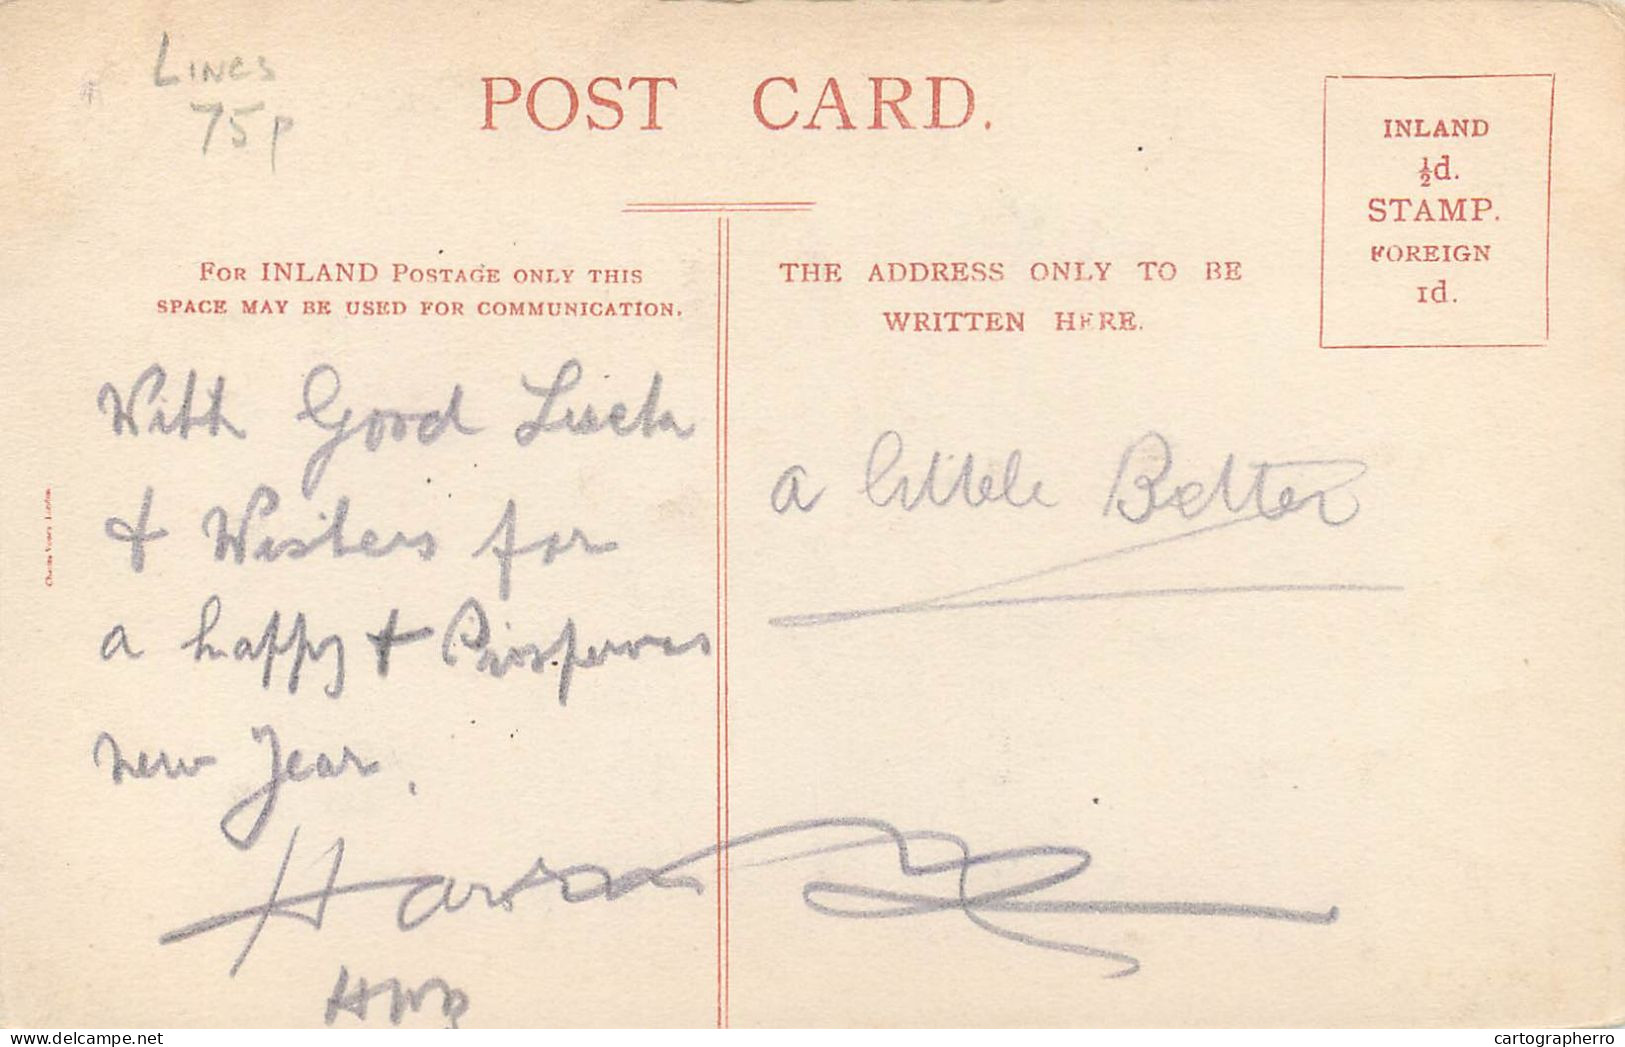 LINCS
75p
POST CARD.
INLAND
½d.
STAMP.
FOREIGN
1d.
FOR INLAND POSTAGE ONLY THIS
SPACE MAY BE USED FOR COMMUNICATION.
THE ADDRESS ONLY TO BE
WRITTEN HERE.
With Good Luck
& Wishes for
a happy & Prosperous
new Year.
a little Better
cartographerro